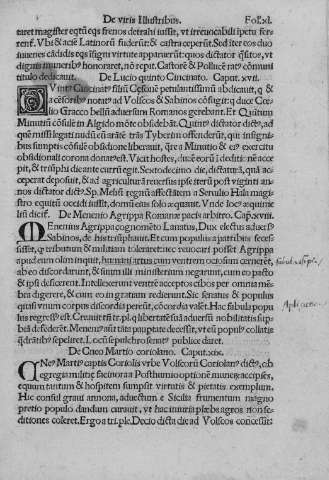 De viris Illustribus. Fol.xl.
turet magister eqtũ eqs frenos detrahi iussit, vt irreuocabili ipetu fer-
rent. Vbi & aciẽ Latinorũ fuderũt & castra ceperũt. Sed iter eos duo
iuuenes cãdidis eqs isigni virtute apparuerũt: quos dictator q̃sitos, vt
dignis muneribꝰ honoraret, nõ repit. Castorẽ & Pollucẽ ratꝰ cõmuni
titulo dedicauit. De Lucio quinto Cincinato. Caput. xvii.
Quintꝰ Cincinatꝰ filiũ Cesonẽ petulãtissimũ abdicauit, q &
a cẽsoribꝰ notatꝰ ad Volscos & Sabinos cõfugit: q duce Cœ-
lio Gracco bellũ aduersum Romanos gerebant. Et Quintum
Minutiũ cõsulẽ in Algido mõte obsidebãt. Quintꝰ dictator dictꝰ, ad
quẽ missi legati nudũ eũ arãtẽ trãs Tyberim offenderũt, qui insigni-
bus sumptis cõsulẽ obsidione liberauit, qre a Minutio & eiꝰ exercitu
obsidionali corona donatꝰ est. Vicit hostes, ducẽ eorũ ĩ deditiõẽ acce-
pit, & triũphi die ante currũ egit. Sextodecimo die, dictaturã, quã ac-
ceperat deposuit, & ad agriculturã reuersus ipse iterũ post viginti an-
nos dictator dictꝰ. Sp. Meliũ regnũ affectãtem a Seruilio Hala magi-
stro equitũ occidi iussit, domũ eius solo æquauit. Vnde locꝰ æquime-
liũ dicit. De Menenio Agrippa Romanæ pacis arbitro. Cap. xviii.
Menenius Agrippa cognomẽto Lanatus, Dux electus aduersꝰ
Sabinos, de his triũphauit. Et cum populus a patribus seces-
sisset, q tributum & militiam toleraret: nec reuocari posset Agrippa
apud eum olim inquit, humani artus cum ventrem ociosum cernerẽt,
ab eo discordarunt, & suum illi ministerium negarunt, cum eo pacto
& ipsi deficerent. Intellexerunt ventrẽ acceptos cibos per omnia mẽ-
bra digerere, & cum eo in gratiam redierunt. Sic senatus & populus
quasi vnum corpus discordia pereũt, cõcordia valẽt. Hac fabula popu-
lus regressꝰ est. Creauit tñ tri. pl. q libertatẽ suã aduersũ nobilitatis sup-
biã defederẽt. Meneniꝰ aũt tãta paupertate decessit, vt eũ populꝰ collatis
q̃drãtibꝰ sepeliret. Locũ sepulchro senatꝰ publice daret.
De Cneo Martio coriolano. Caput. xix.
Cneꝰ Martiꝰ captis Coriolis vrbe Volscorũ Coriolanꝰ dictꝰ, ob
egregia militię facinora a Posthumio optionẽ munerꝰ accipiẽs,
equum tantum & hospitem sumpsit virtutis & pietatis exemplum.
Hic consul graui annona, aduectum e Sicilia frumentum magno
pretio populo dandum curauit, vt hac iniuria plæbs agros non se-
ditiones coleret. Ergo a tri. ple. Decio dicta die ad Volscos concessit: